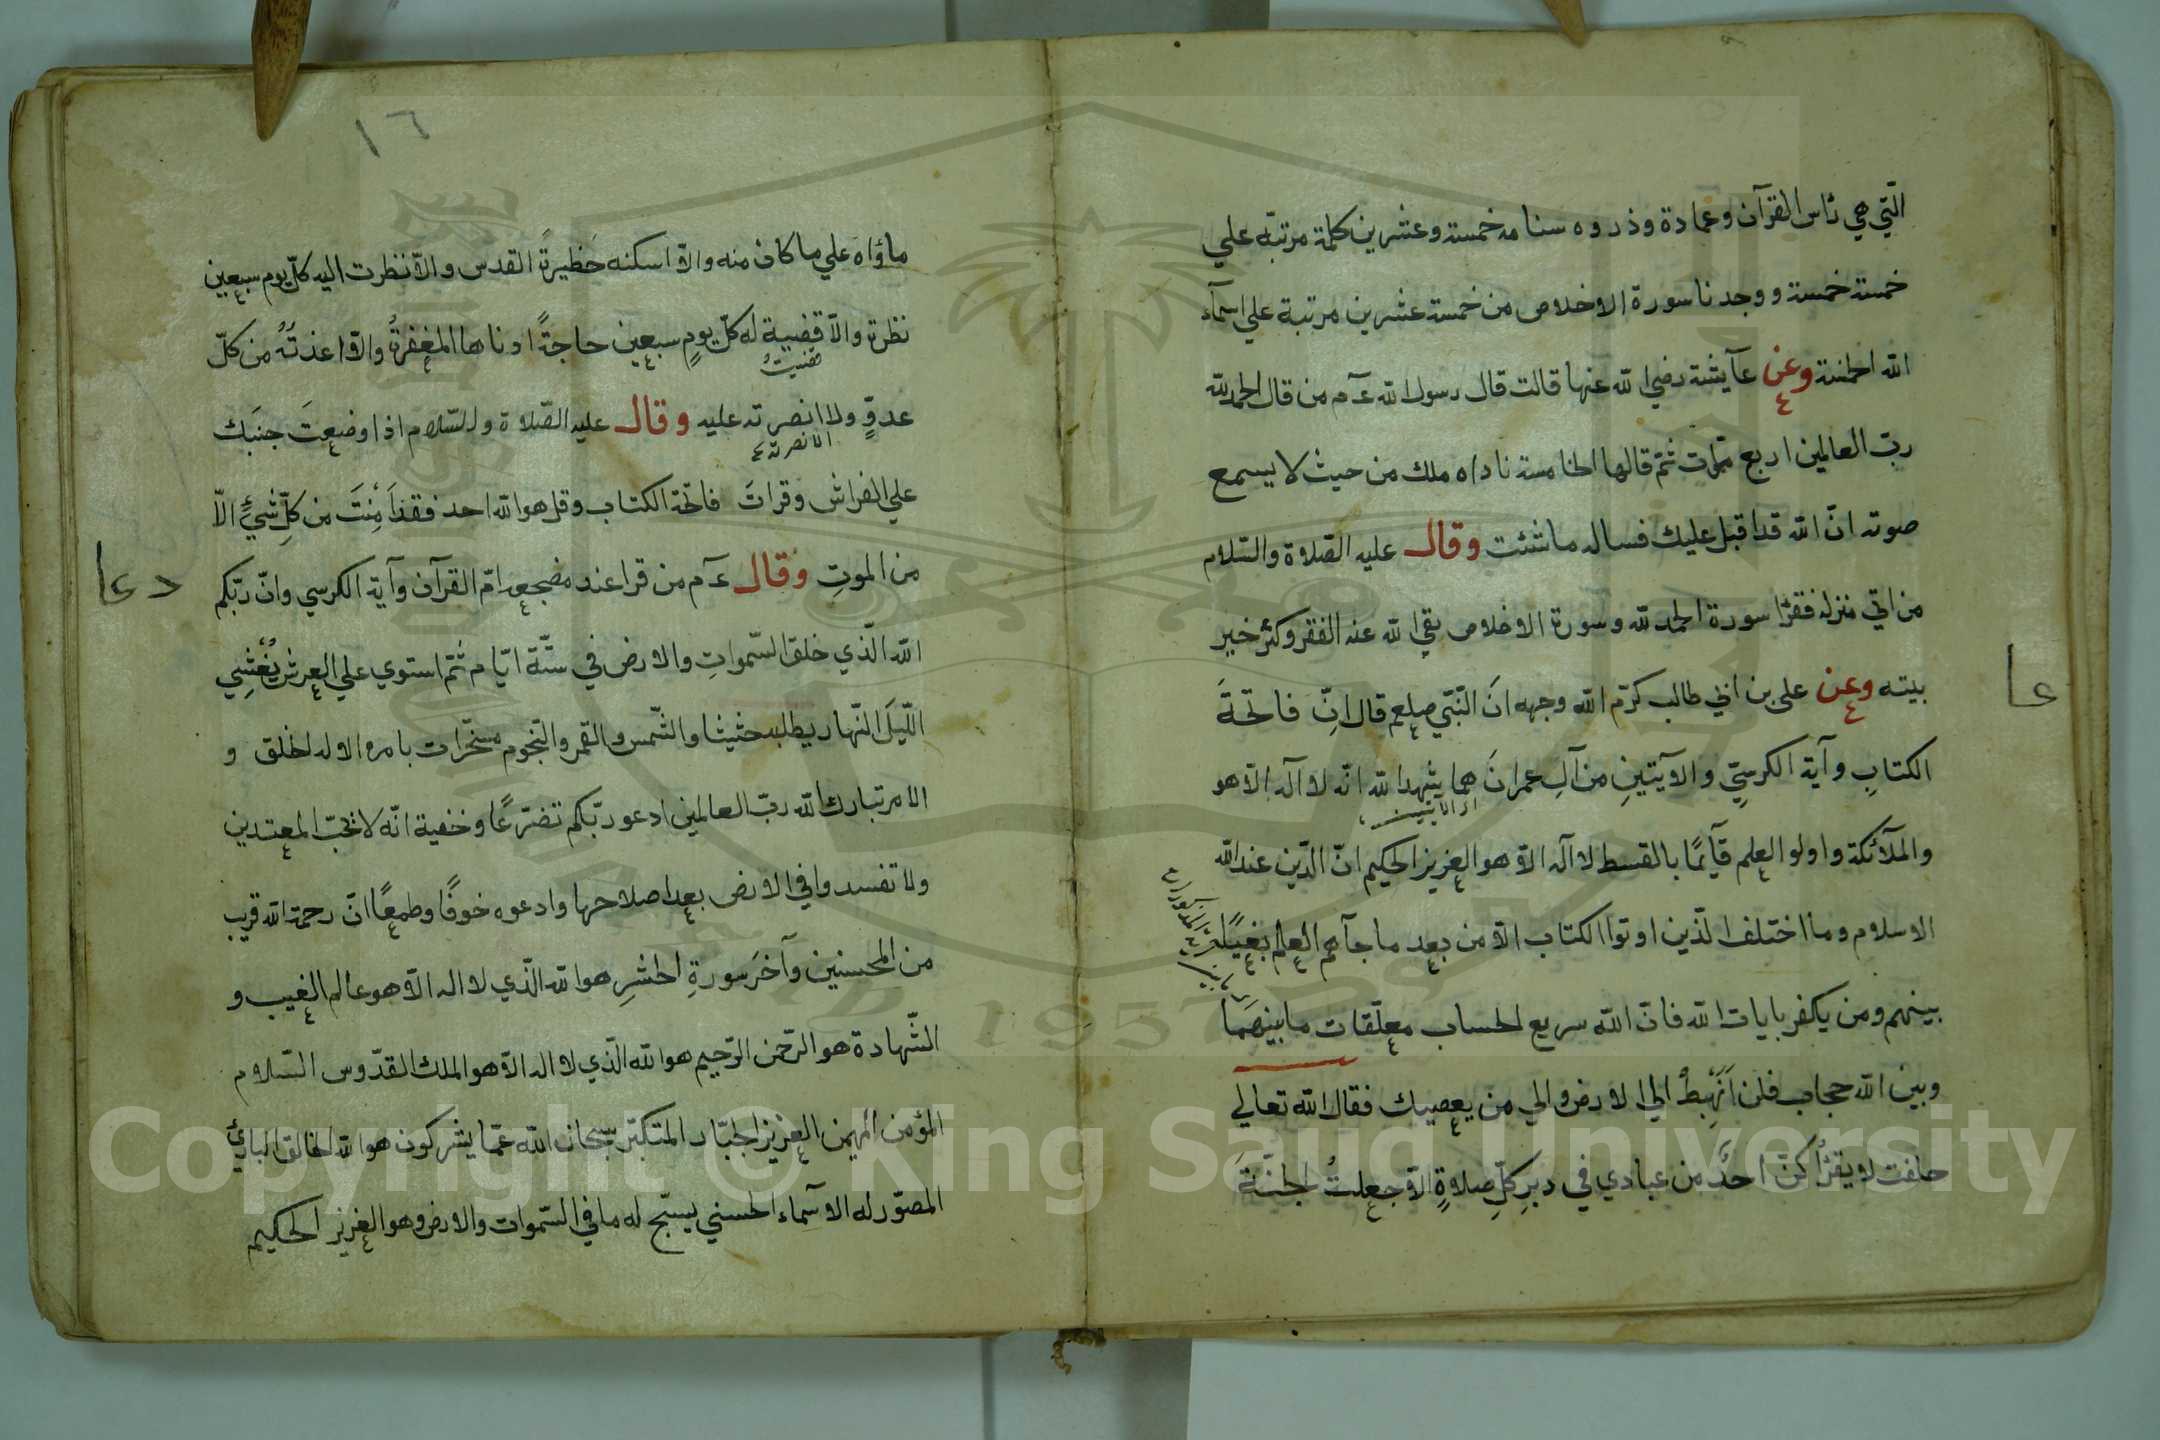 الّتي هي رأس القرآن وعمادة وذروه سنامه خمسة وعشرين كلمة مرتبّه علي
خمسة خمسة ووجدنا سورة الاخلاص من خمسة عشرين مرتبة علي اسمآء
الله الحسنة وعن عآيشة رضي الله عنها قالت قال رسول الله ءم من قال الحمد لله
ربّ العالمين اربع مرّات ثمّ قالها الخامسة ناداه ملك من حيث لا يسمع
صوته انّ الله قد اقبل عليك فساله ما شئت وقال عليه الصّلاة والسّلام
من اتي منزله فقرٔا سورة الحمد لله وسورة الاخلاص بقي الله عنه الفقر وكثر خير
بيته وعن علي بن ابي طالب كرّم الله وجهه انَ النّبيّ صلعم قال انّ فاتحةَ
الكتابِ وآية الكرسيّ والآيتينِ من آلِ عمرانَ هما يشهد الله انّه لا آله الّا هو
اي الايتين
والملآئكة واولو العلم قآيمًا بالقسط لا آله الّا هو العزيز الحكيم انّ الدّين عند الله
الاسلام وما اختلف الّذين اوتوا الكتاب الّا من بعد ما جآءهم العلم بغيًا
بينهم ومن يكفر بايات الله فانّ الله سريع الحساب معلّقات ما بينهما
وبين الله حجاب قلن اتهبطُ الي الارض والي من يعصيك فقال الله تعالي
حلفت لا يقرٔا كنّ احدٌ من عبادي في دبر كلّ صلاةٍ الّا جعلتُ الجنّةَ
عا
١٦
مأواه علي ما كان منه والّا اسكنه حَظيرةَ القدس والّا نظرت اليه كلّ يوم سبعين
نظرة والّا قضية له كلّ يومٍ سبعين حاجةً ادناها المغفرةُ والّا اعذتُهُ من كلّ
قضيتُ
عدوٍّ ولا انصرته عليه وقال عليه الصّلاة والسّلام اذا وضعتَ جنبَك
الا نصرته
علي الفراش وقراتَ فاتحة الكتاب وقل هو الله احد فقد اَمِنْتَ من كلّ شيءٍ الّا
من الموتِ وقال ءم من قرا عند مضجعه امّ القرآن وآية الكرسي وانّ ربّكم
دعا
الله الّذي خلق السّمواتِ والارض في ستّة ايّام ثمّ استوي علي العرش يُغْشِي
اللّيلَ النّهار يطلبه حثيثا والشّمس والقمر والنّجوم مسخّرات بامره الا له الخلق و
الامر تبارك الله ربّ العالمين ادعو ربّكم تضرّعًا وخفية انّه لا يحبّ المعتدين
ولا تفسدوا في الارض بعد اصلاحها وادعوه خوفًا وطمعًا انّ رحمة الله قريب
من المحسنين وآخر سورةِ الحشرِ هو الله الّذي لا اله الّا هو عالم الغيب و
الشّهادة هو الرّحمن الرّحيم هو الله الّذي لا اله الّا هو الملك القدّوس السّلام
المؤمن المهيمن العزيز الجبّار المتكبّر سبحان الله عمّا يشركون هو الله الخالق البارئ
المصوّر له الاسماء الحسني يسبّح له ما في السّموات والارض وهو العزيز الحكيم
Copyright © King Saud University
1957